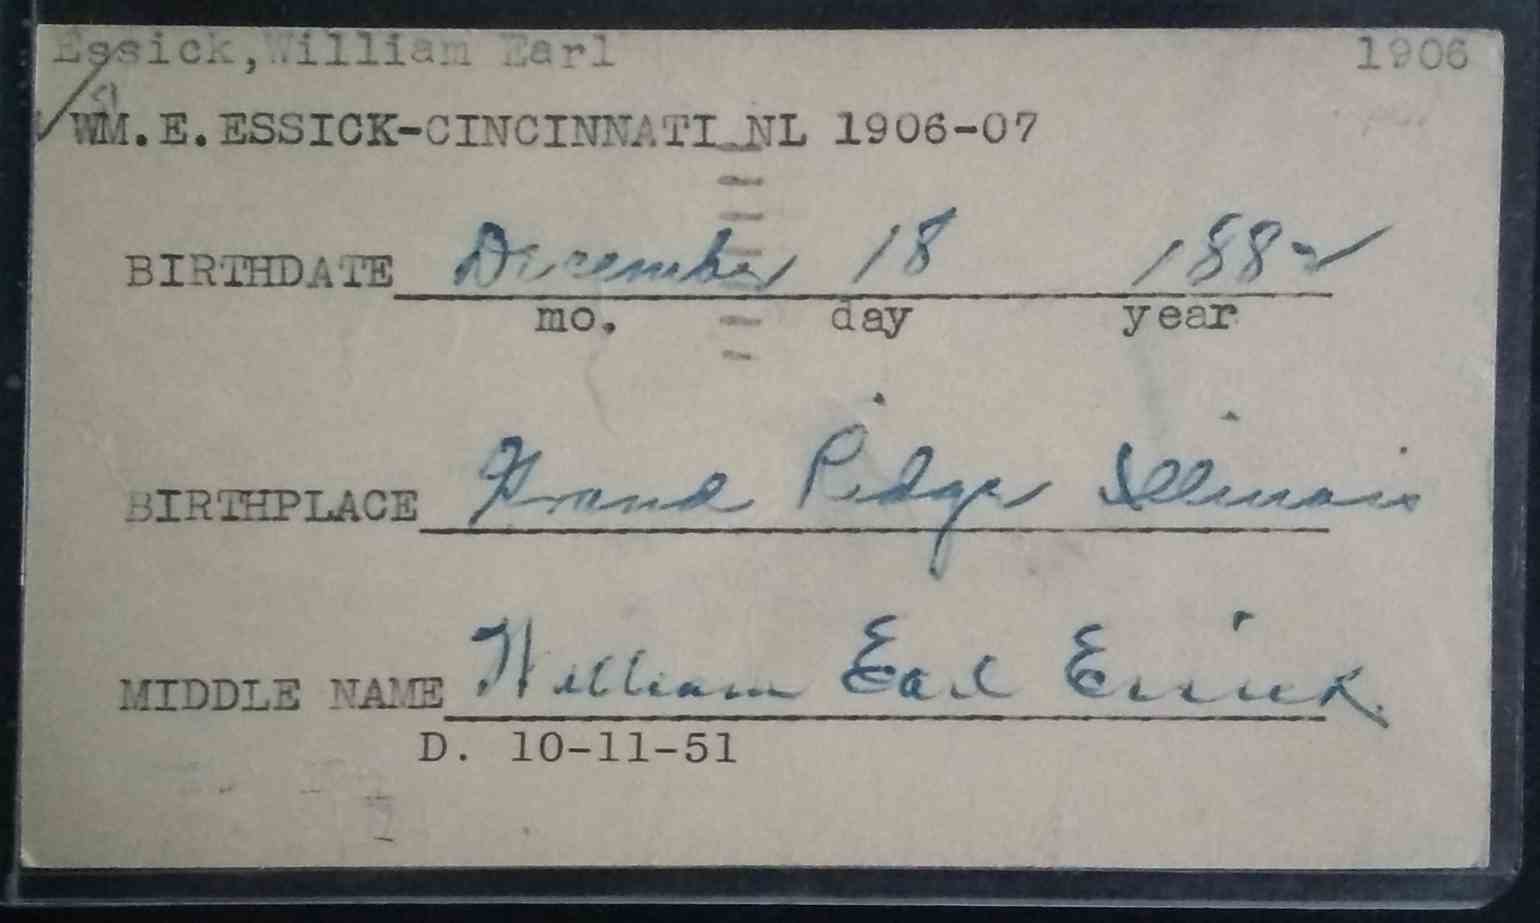 Essick, William Earl 1906
WM. E. ESSICK-CINCINNATI NL 1906-07
BIRTHDATE December 18 1882
mo. day year
BIRTHPLACE Grand Ridge Illinois
MIDDLE NAME William Earl Essick
D. 10-11-51